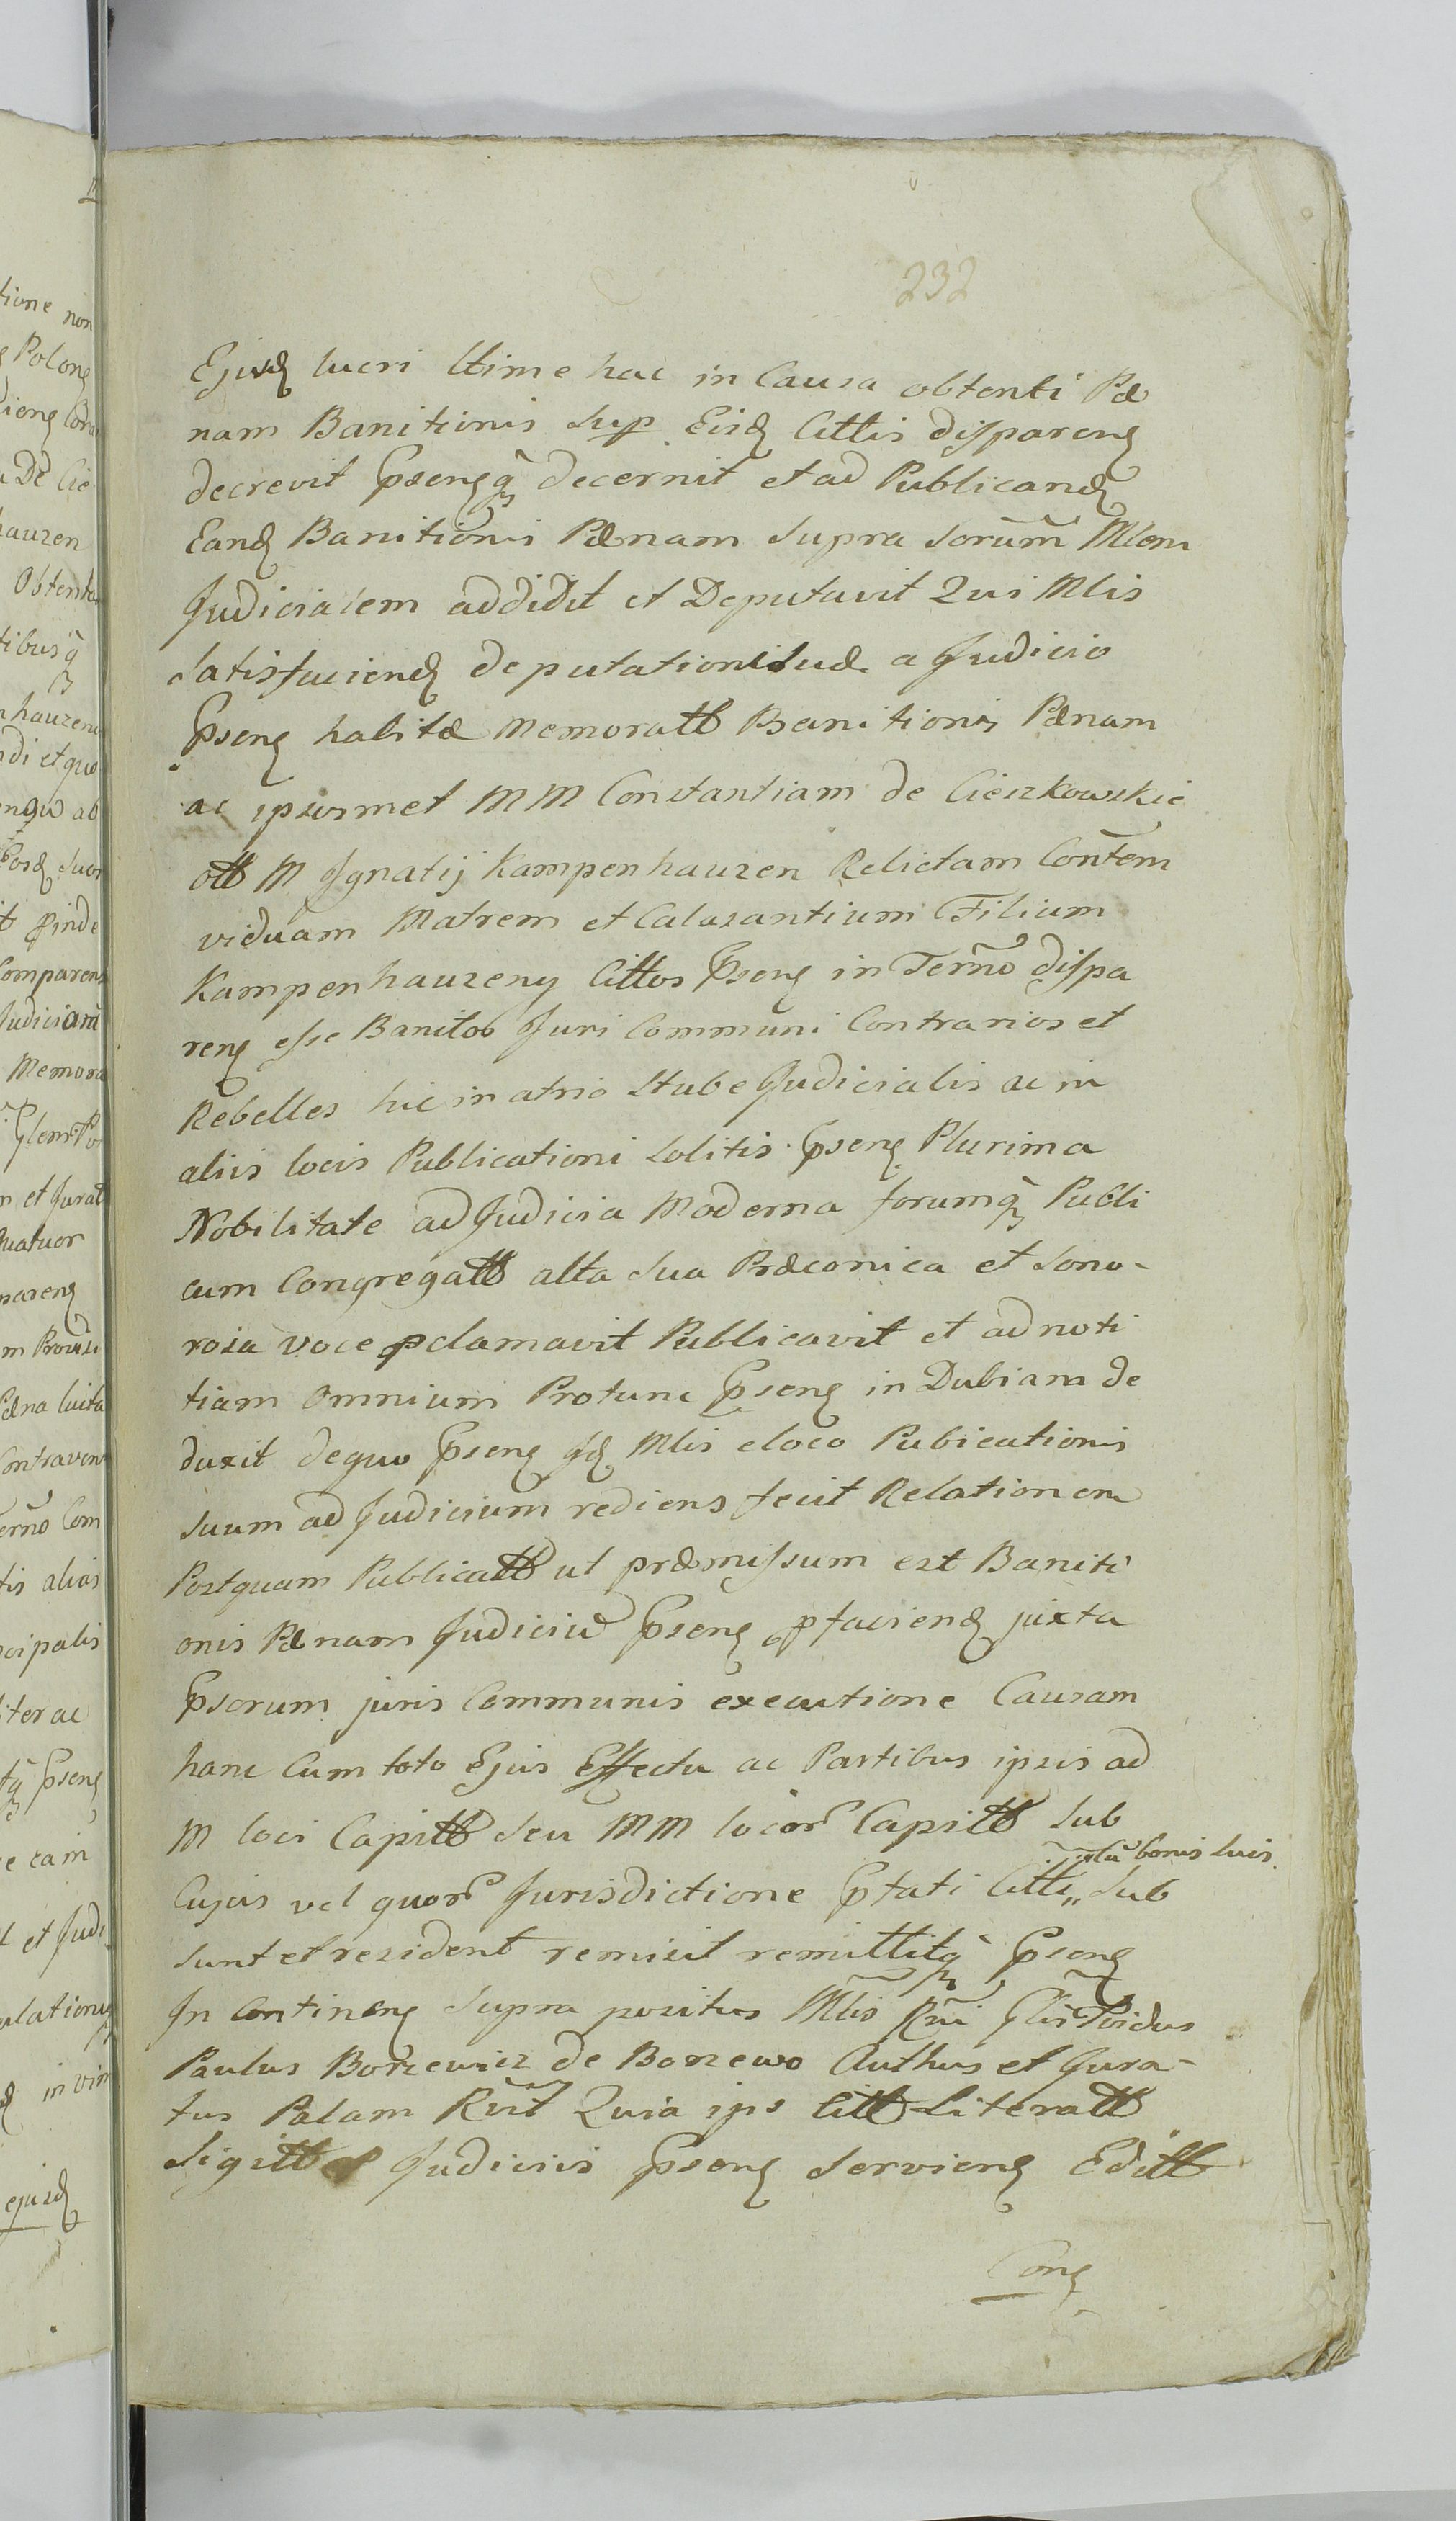 232
Ejusd lucri ltime hac in Causa obtenti Pæ
nam Banitionis sup Eisd Cittis disparen
decrevit Psensq decernit et ad Publicand
Eand Banitionis Pænam supra Mlem
Judicialem addidit et Deputavit Qui Mlis
satisfaciend deputationi suæ a Judicio
Psen habitæ memoratt Banitionis Pænam
ac ipsosmet MM Constantiam de Cieszkowskie
ott M Ignatij Kampenhauzen Relictam Contem
viduam Matrem et Calasantium Filium
Kampenhauzeny Cittos Psen in Termo dispa
ren esse Banitos Juri Communi Contrarios et
Rebelles hic in atrio Stube Judicialis ac in
aliis locis Publicationi solitis Psen Plurima
Nobilitate ad Judicia Moderna forumq Publi
cum Congregatt alta sua Præconica et sono-
rosa voce pclamavit Publicavit et ad noti
tiam omnium Protunc Psen in Dubiam de
duxit dequo Psen id Mlis eloco Pubicationis
suum ad Judicium rediens fecit Relationem
Postquam Publicatt ut præmissum est Baniti
onis Pænam Judiciu Psen pfaciend juxta
Psorum juris Communis executione Causam
hanc Cum toto Ejus Effectu ac Partibus ipsis ad
M loci Capitt seu MM locor Capitt sub
Cujus vel quor Jurisdictione Ptati Citti „ sub
bonis suis
sunt et resident remisit remittitq Psen
In Continen supra positus Mlis Rni Glis Pvidus
Paulus Borzewicz de Borzewo Authus et Jura-
tus Palam Rvit Quia ips litt Literatt
Sigitt Judiciis Psen servien Editt
Con